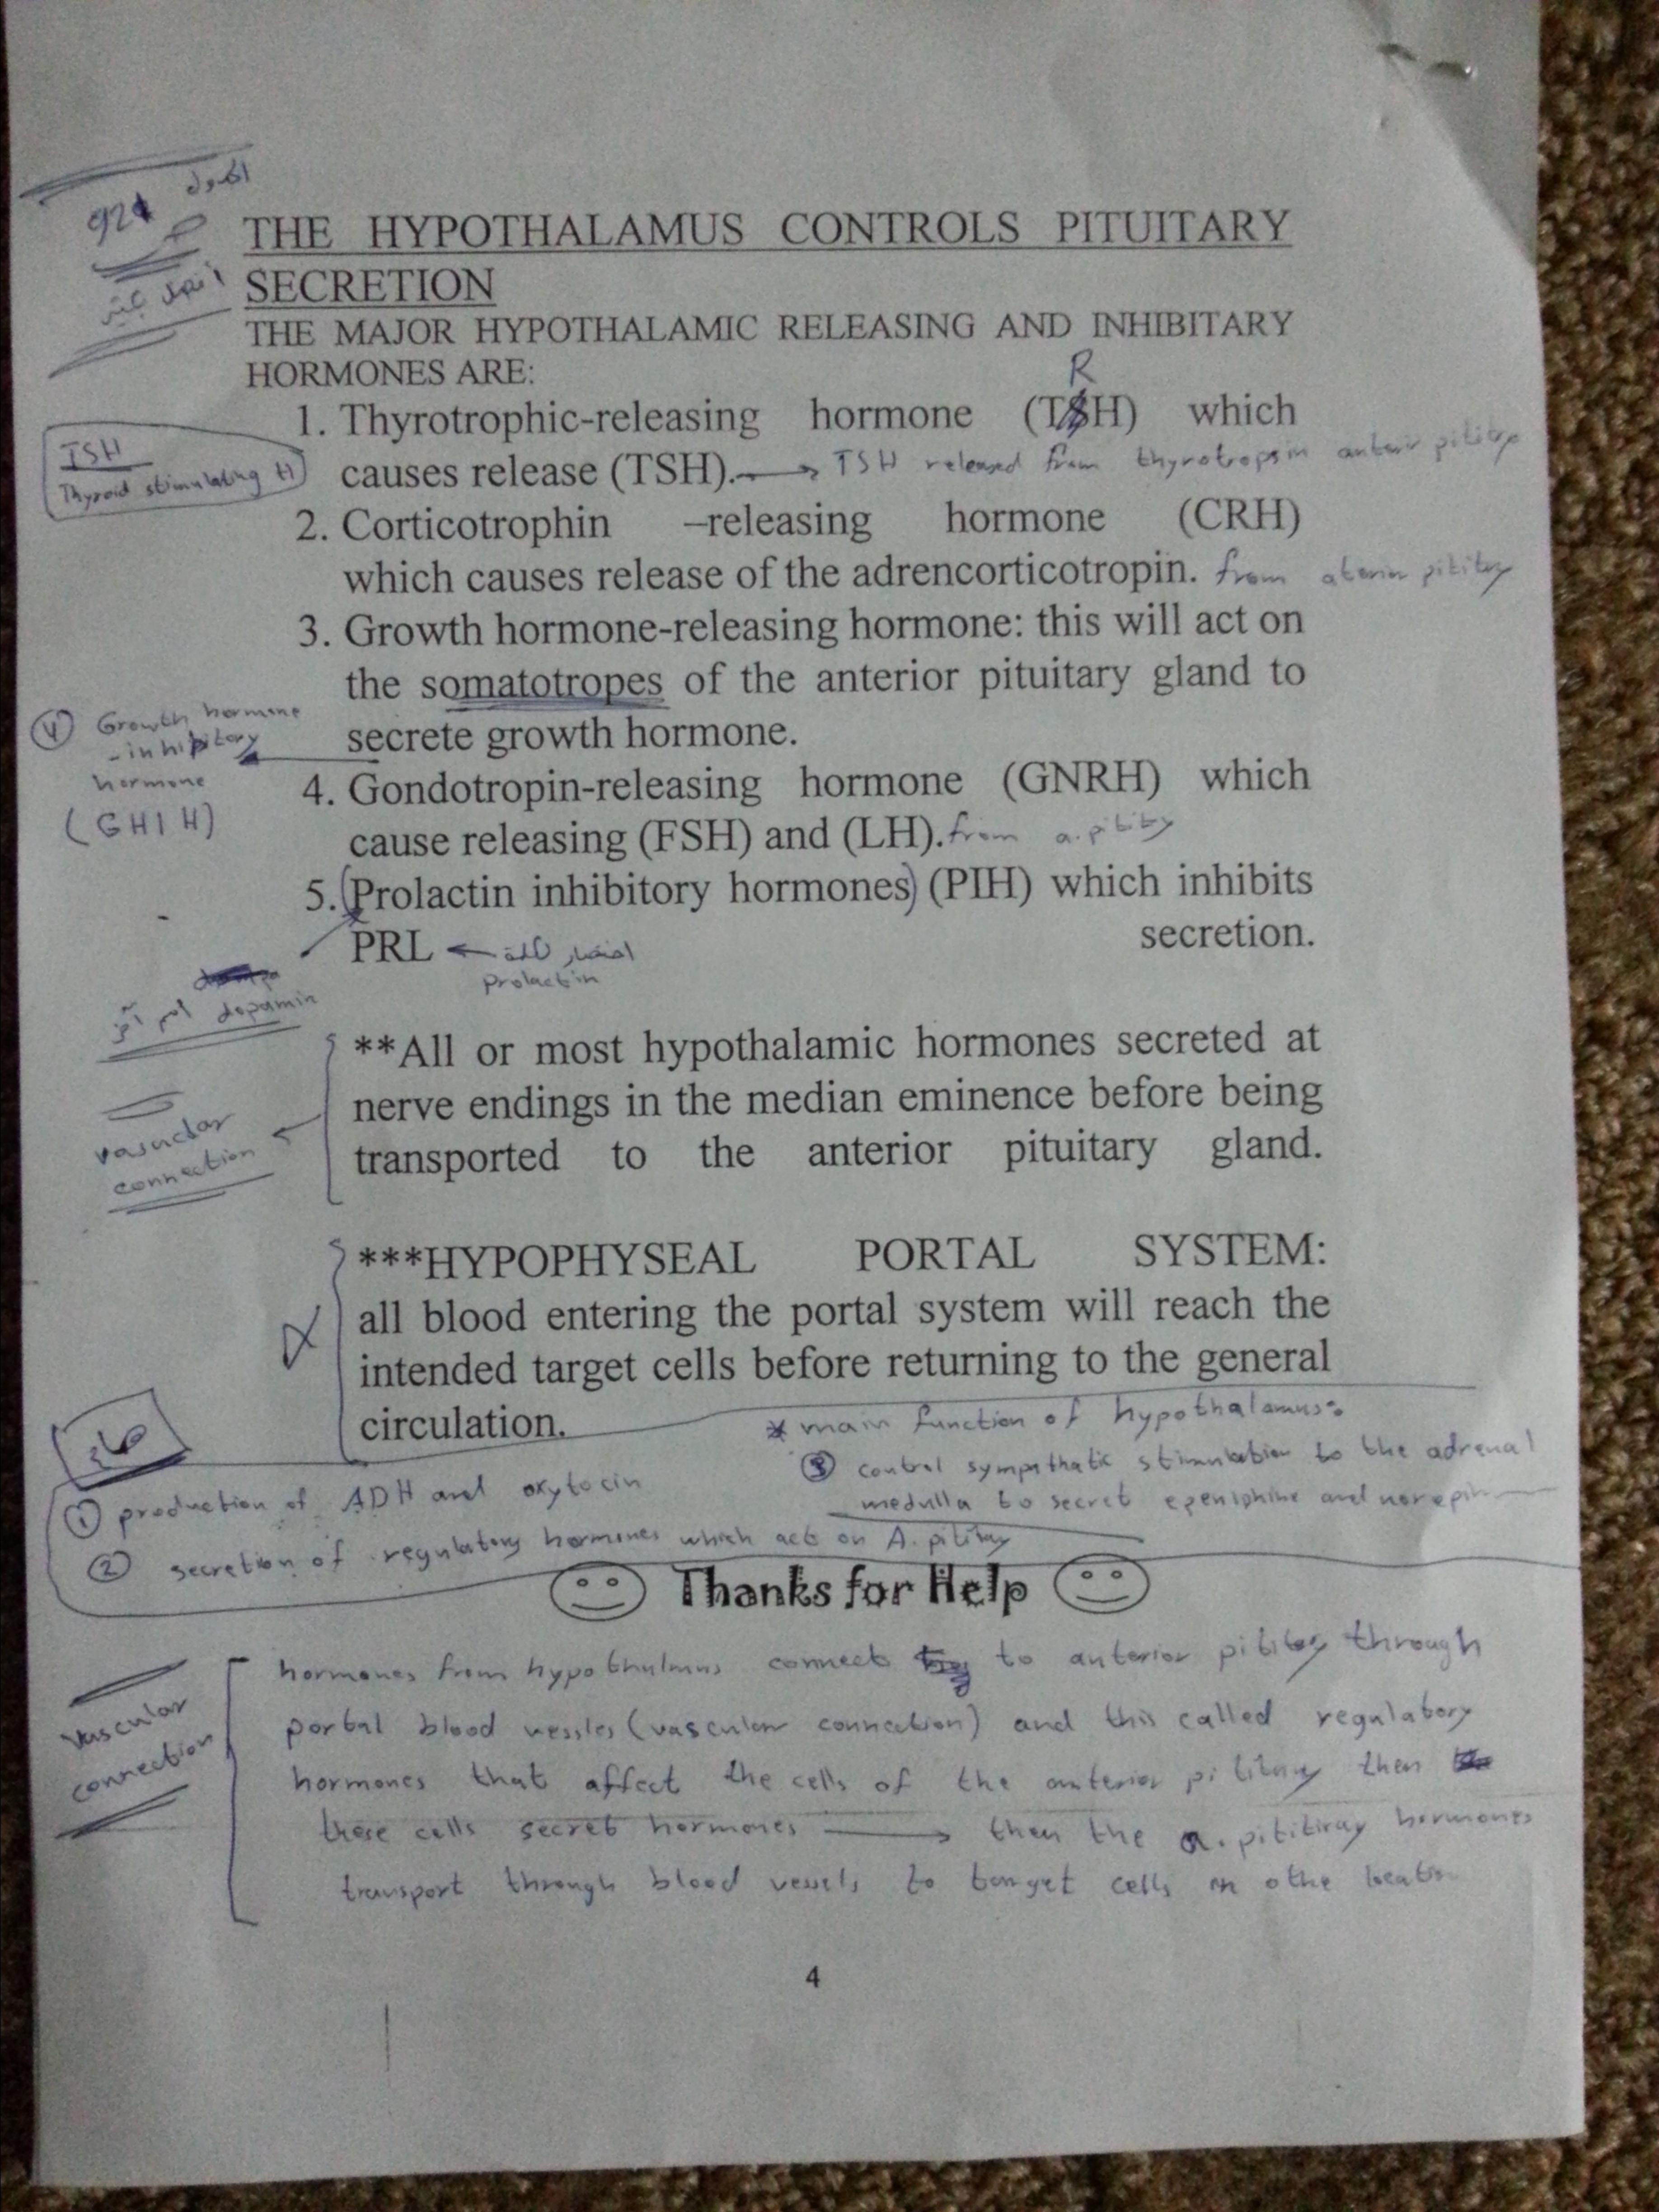 الجدول
921
THE HYPOTHALAMUS CONTROLS PITUITARY
SECRETION
THE MAJOR HYPOTHALAMIC RELEASING AND INHIBITARY
HORMONES ARE:
R
1. Thyrotrophic-releasing hormone (TSH) which
causes release (TSH). → TSH released from thyrotrops in anterir pititry
TSH
Thyroid stimulating H
2. Corticotrophin –releasing hormone (CRH)
which causes release of the adrencorticotropin. from aterir pititry
3. Growth hormone-releasing hormone: this will act on
the somatotropes of the anterior pituitary gland to
secrete growth hormone.
4 Growth hormone
-inhibitory
hormone
(GHIH)
4. Gondotropin-releasing hormone (GNRH) which
cause releasing (FSH) and (LH). from a.pitity
5. (Prolactin inhibitory hormones) (PIH) which inhibits
PRL ← اختصار لكلمة secretion.
prolactin
اسم آخر dopamin
**All or most hypothalamic hormones secreted at
nerve endings in the median eminence before being
transported to the anterior pituitary gland.
vasuclar
connection
***HYPOPHYSEAL PORTAL SYSTEM:
all blood entering the portal system will reach the
intended target cells before returning to the general
circulation.
* main function of hypothalamus:
1 production of ADH and oxytocin
2 secretion of regulatory hormones which act on A. pititay
3 control sympathatic stimulation to the adrenal
medulla to secret epeniphine and norepin
Thanks for Help
vascular
connection
hormones from hypothulmus connect to anterior pititary through
portal blood vessles (vascular connection) and this called regulatory
hormones that affect the cells of the anterior pititary then
these cells secret hormones → then the a. pititiray hormones
transport through blood vessels to target cells in othe
4